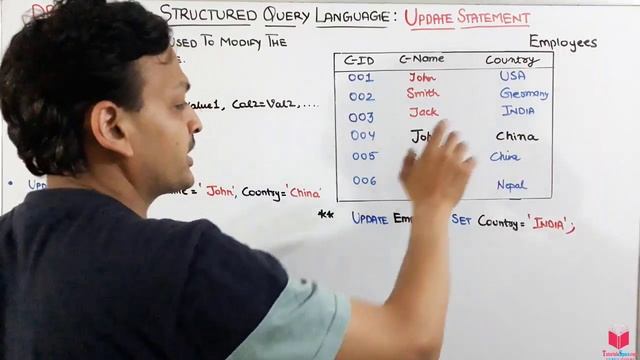 STRUCTURED QUERY LANGUAGE: UPDATE STATEMENT
USED TO MODIFY THE
Employees
C-ID C-Name Country
001 John USA
002 Smith Germany
003 Jack INDIA
004 China
005 China
006 Nepal
Value1, Col2=Val2,....
= 'John', Country='China'
** UPDATE SET Country='INDIA';